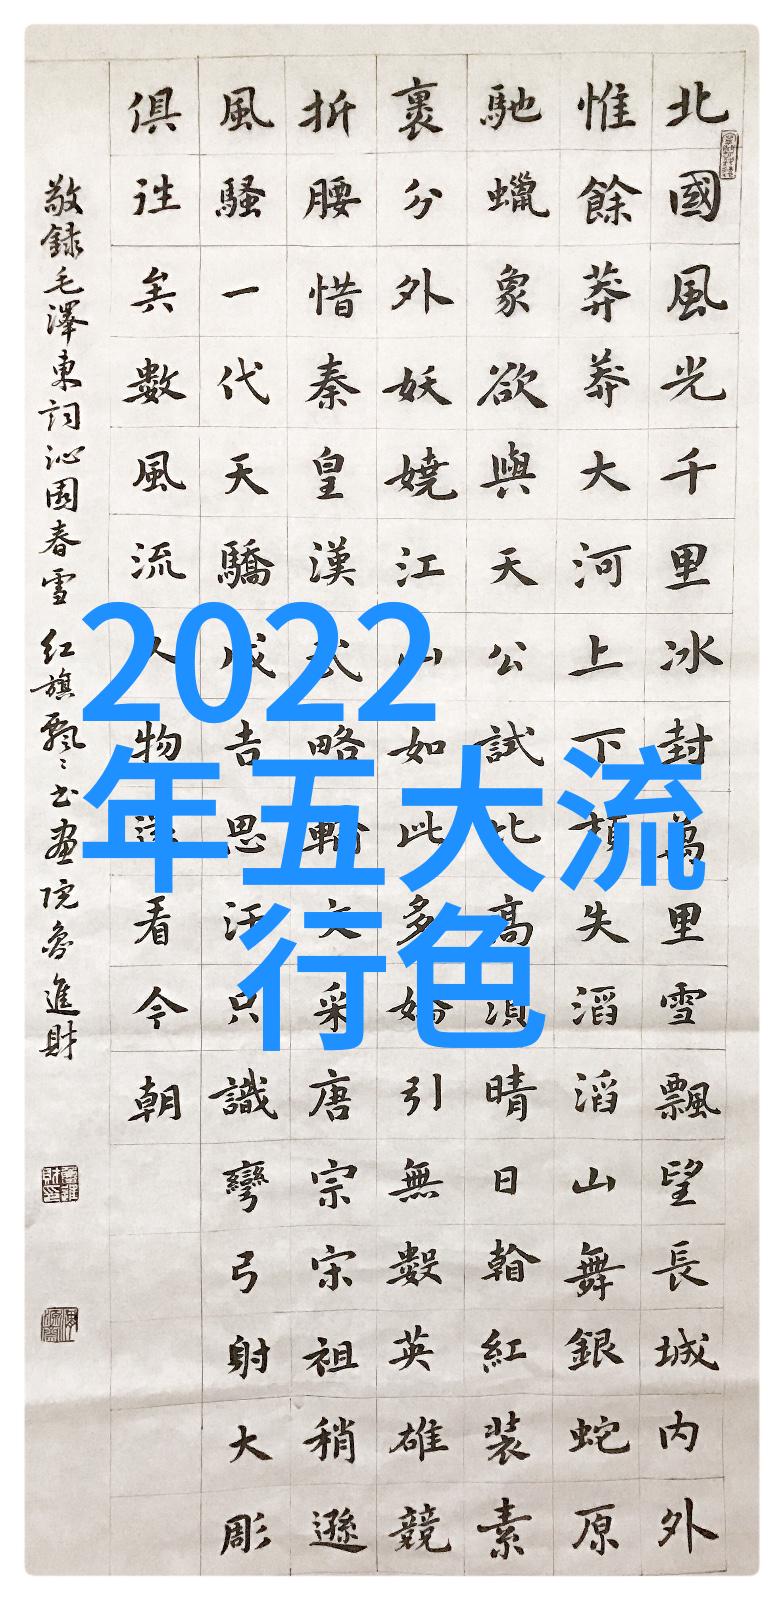 北國風光千里冰封萬里雪飄望長城内外
惟餘莽莽大河上下頓失滔滔山舞銀蛇原
馳蠟象欲與天公試比高須晴日看紅装素
裹分外妖嬈江山如此多嬌引無數英雄競
折腰惜秦皇漢武略輸文采唐宗宋祖稍遜
風騷一代天驕成吉思汗只識彎弓射大彫
俱往矣數風流人物還看今朝
敬録毛澤東詞沁園春雪 红旗飘飘书画院魯進財
2022
年五大流
行色